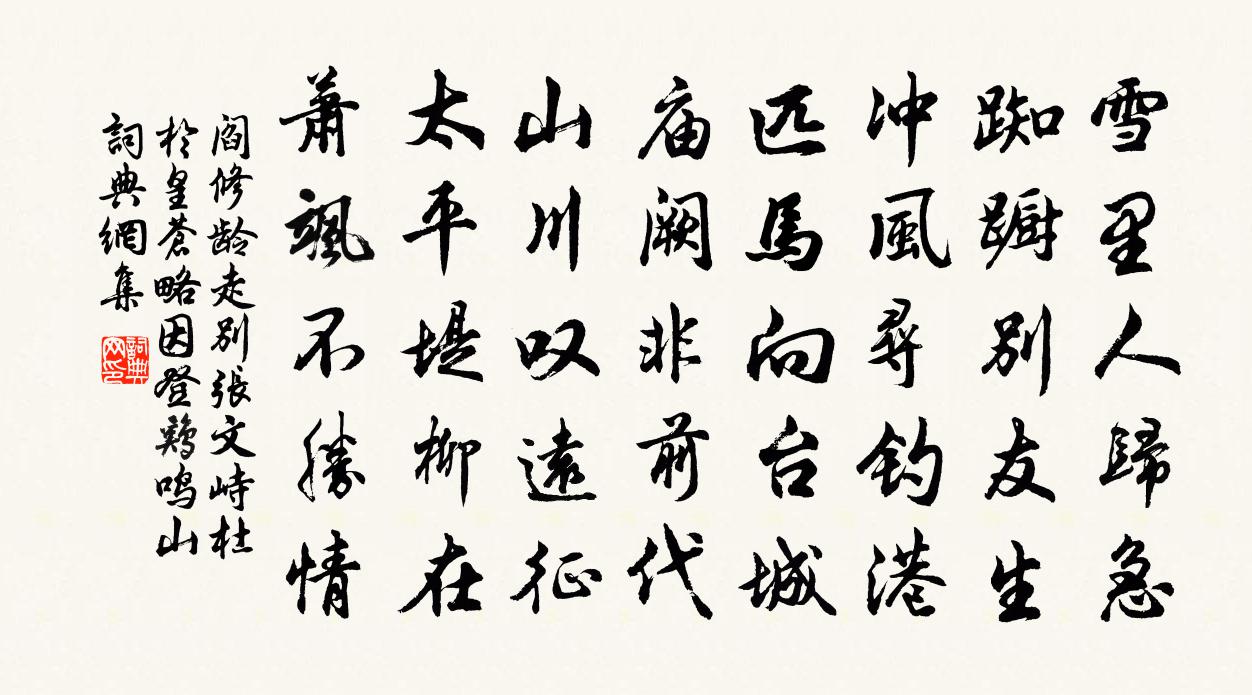 雪里人歸急
踟蹰别友生
冲風尋釣港
匹馬向台城
庙阙非前代
山川叹遠征
太平堤柳在
萧飒不勝情
阎修龄走别張文峙杜
於皇蒼略因登鷄鸣山
詞典網集
詞典
网印